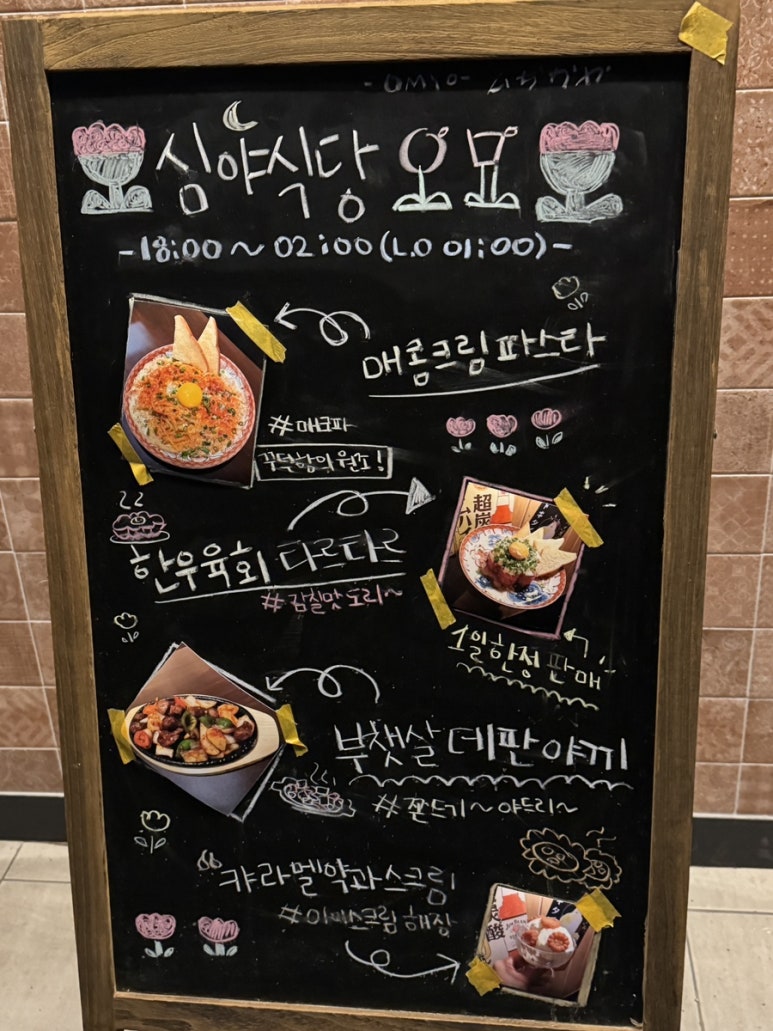 심야식당 오묘
-18:00 ~ 02:00 (L.O 01:00)-
매콤크림파스타
#매크파
꾸덕함의 원조!
한우육회 타르타르
#감칠맛 도리~
1일 한정 판매
부챗살 데판야끼
#쫀드기~야드리~
캬라멜약과스크림
#아이스크림 해장